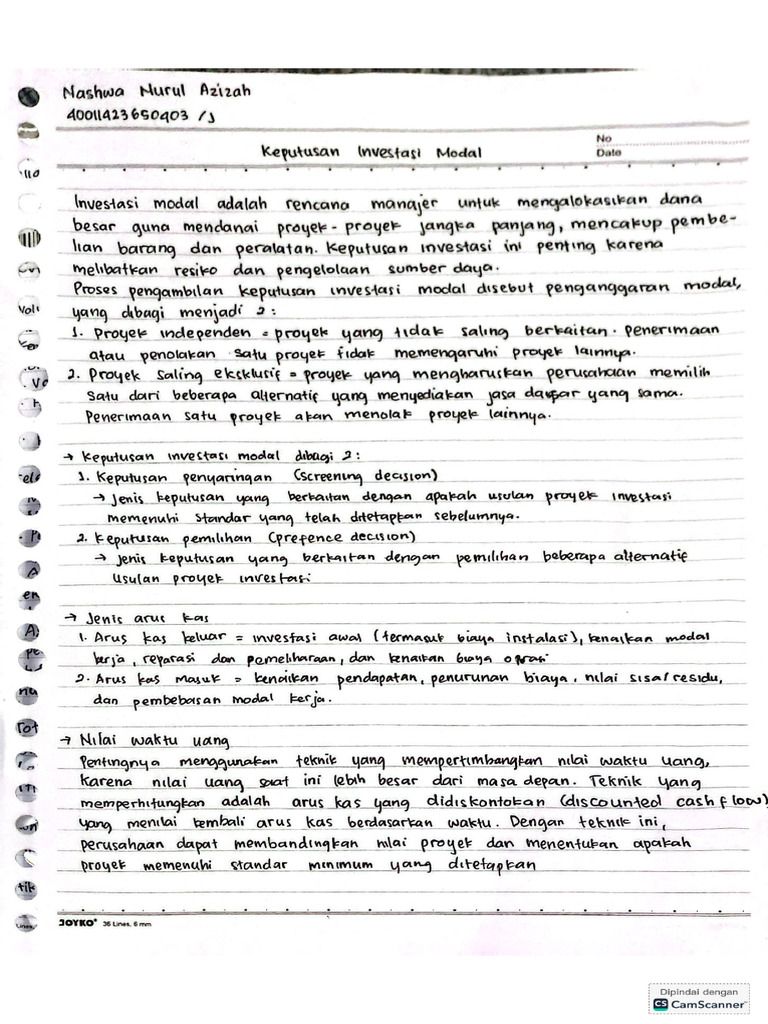 Nashwa Nurul Azizah
40011423650403 / J
No
Date
Keputusan Investasi Modal
Investasi modal adalah rencana manajer untuk mengalokasikan dana
besar guna mendanai proyek-proyek jangka panjang, mencakup pembe-
lian barang dan peralatan. Keputusan investasi ini penting karena
melibatkan resiko dan pengelolaan sumber daya.
Proses pengambilan keputusan investasi modal disebut penganggaran modal,
yang dibagi menjadi 2:
1. Proyek independen = proyek yang tidak saling berkaitan. penerimaan
atau penolakan satu proyek tidak memengaruhi proyek lainnya.
2. Proyek saling eksklusif = proyek yang mengharuskan perusahaan memilih
satu dari beberapa alternatif yang menyediakan jasa dasar yang sama.
Penerimaan satu proyek akan menolak proyek lainnya.
→ Keputusan investasi modal dibagi 2:
1. Keputusan penyaringan (screening decision)
→ Jenis keputusan yang berkaitan dengan apakah usulan proyek investasi
memenuhi standar yang telah ditetapkan sebelumnya.
2. Keputusan pemilihan (prefence decision)
→ Jenis keputusan yang berkaitan dengan pemilihan beberapa alternatif
usulan proyek investasi
→ Jenis arus kas
1. Arus kas keluar = investasi awal (termasuk biaya instalasi), kenaikan modal
kerja, reparasi dan pemeliharaan, dan kenaikan biaya oprasi
2. Arus kas masuk = kenaikan pendapatan, penurunan biaya, nilai sisa/residu,
dan pembebasan modal kerja.
→ Nilai waktu uang
Pentingnya menggunakan teknik yang mempertimbangkan nilai waktu uang,
karena nilai uang saat ini lebih besar dari masa depan. Teknik yang
memperhitungkan adalah arus kas yang didiskontokan (discounted cash flow)
yang menilai kembali arus kas berdasarkan waktu. Dengan teknik ini,
perusahaan dapat membandingkan nilai proyek dan menentukan apakah
proyek memenuhi standar minimum yang ditetapkan
JOYKO 36 Lines, 6 mm
Dipindai dengan
CS CamScanner